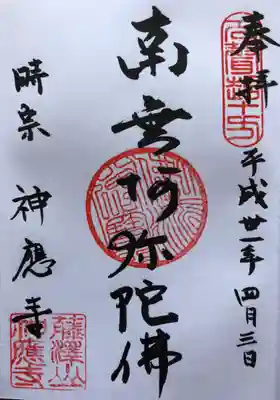 奉拝
平成廿一年四月三日
南無阿弥陀佛
時宗 神應寺
藤澤山
神應寺